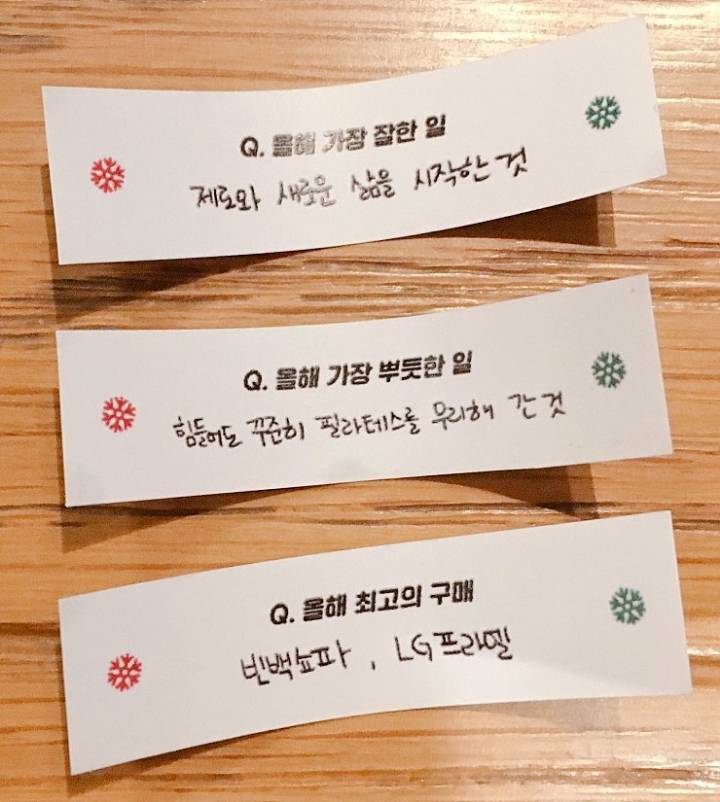 Q. 올해 가장 잘한 일
제도와 새로운 삶을 시작한 것
Q. 올해 가장 뿌듯한 일
힘들어도 꾸준히 필라테스를 무리해 간 것
Q. 올해 최고의 구매
빈백쇼파, LG프라엘